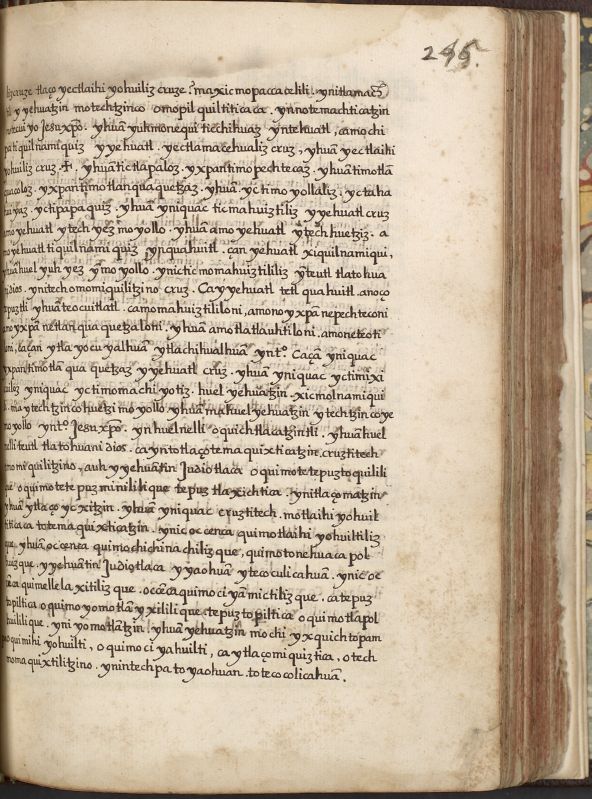 245.
cruze tlaço yectlaihi yohuiliz cruze? ma xicmopaccacelili. ynitlamaca
y yehuatzin motechtzinco omopilquiltiticaca. yn notemachticatzin
notecuiyo Jesu xpo. yhuã yuhmonequi ticchihuaz yntehuatl, camochi
patiquilnamiquiz yyehuatl. yectlamacehualiz cruz, yhuã yectlaihi
yohuiliz cruz. ✝. yhuã tictlapaloz. yxpantimopechtecaz. yhuãtimotlã
quacoloz. yxpantimotlanquaquetzaz. yhuã. yctimoyollaliz. yctaha
huiyaz. yctipapaquiz. yhuã yniquac ticmahuiztiliz yyehuatl cruz
amo yehuatl ytech yez mo yollo. yhuã amo yehuatl ytech huetziz. a
mo yehuatl tiquilnamiquiz yn quahuitl. çan yehuatl xiquilnamiqui,
yhuã huel yuh yez y mo yollo. ynicticmomahuiztililiz y teutl tlatohua
ni dios. ynitech omomiquilitzino cruz. Ca yyehuatl tetl quahuitl. anoço
tepuztli yhuã teocuitlatl. camo mahuiztililoni, amono yxpã nepechteconi
amo yxpã netlanquaquetzaloni. yhuã amo tlatlauhtiloni. amo neteoti
loni, ca çan ytla yocuyalhuã ytlachihualhuã ynto. Caçã yniquac
yxpantimotlã quaquetzaz yyehuatl cruz. yhuã yniquac yctimixi
yniquac yctimomachiyotiz. huel yehuatzin. xicmolnamiqui
li. ma ytechtzinco huetzi mo yollo. yhuã ma huel yehuatzin ytechtzinco ye
mo yollo ynto. Jesu xpo. yn huelnelli oquichtlacatzintli. yhuã huel
nelli teutl tlatohuani dios. ca yn totlaçotemaquixticatzin, cruztitech
omomiquilitzino, auh yyehuãtin Judiotlaca oquimotetepuztoquilili
que oquimotetepuzminililique tepuztlaxichtica. ynitlaçomatzin
yhuã ytlaço ycxitzin. yhuã yniquac cruztitech. motlaihiyohuil
titicaca totemaquixticatzin. ynic occenca quimotlaihiyohuiltiliz
que, yhuã occenca quimochichinachilizque, quimotonehuacapol
huizque. yyehuãtin Judiotlaca yyaohuã yteco culicahuã. ynic oc
cẽca quimellelaxitilizque. occẽca quimociyãmictilizque. catepuz
topiltica oquimoyomotlãyxililique ctepuztopiltica oquimotlapol
huililique. yniyomotlãtzin. yhuã yehuatzin mochi yxquich topam
pa oquimihiyohuilti, oquimociyahuilti, ca ytlaçomiquiztica, otech
momaquixtilitzino. ynintechpa toyaohuan. totecocolicahuã.